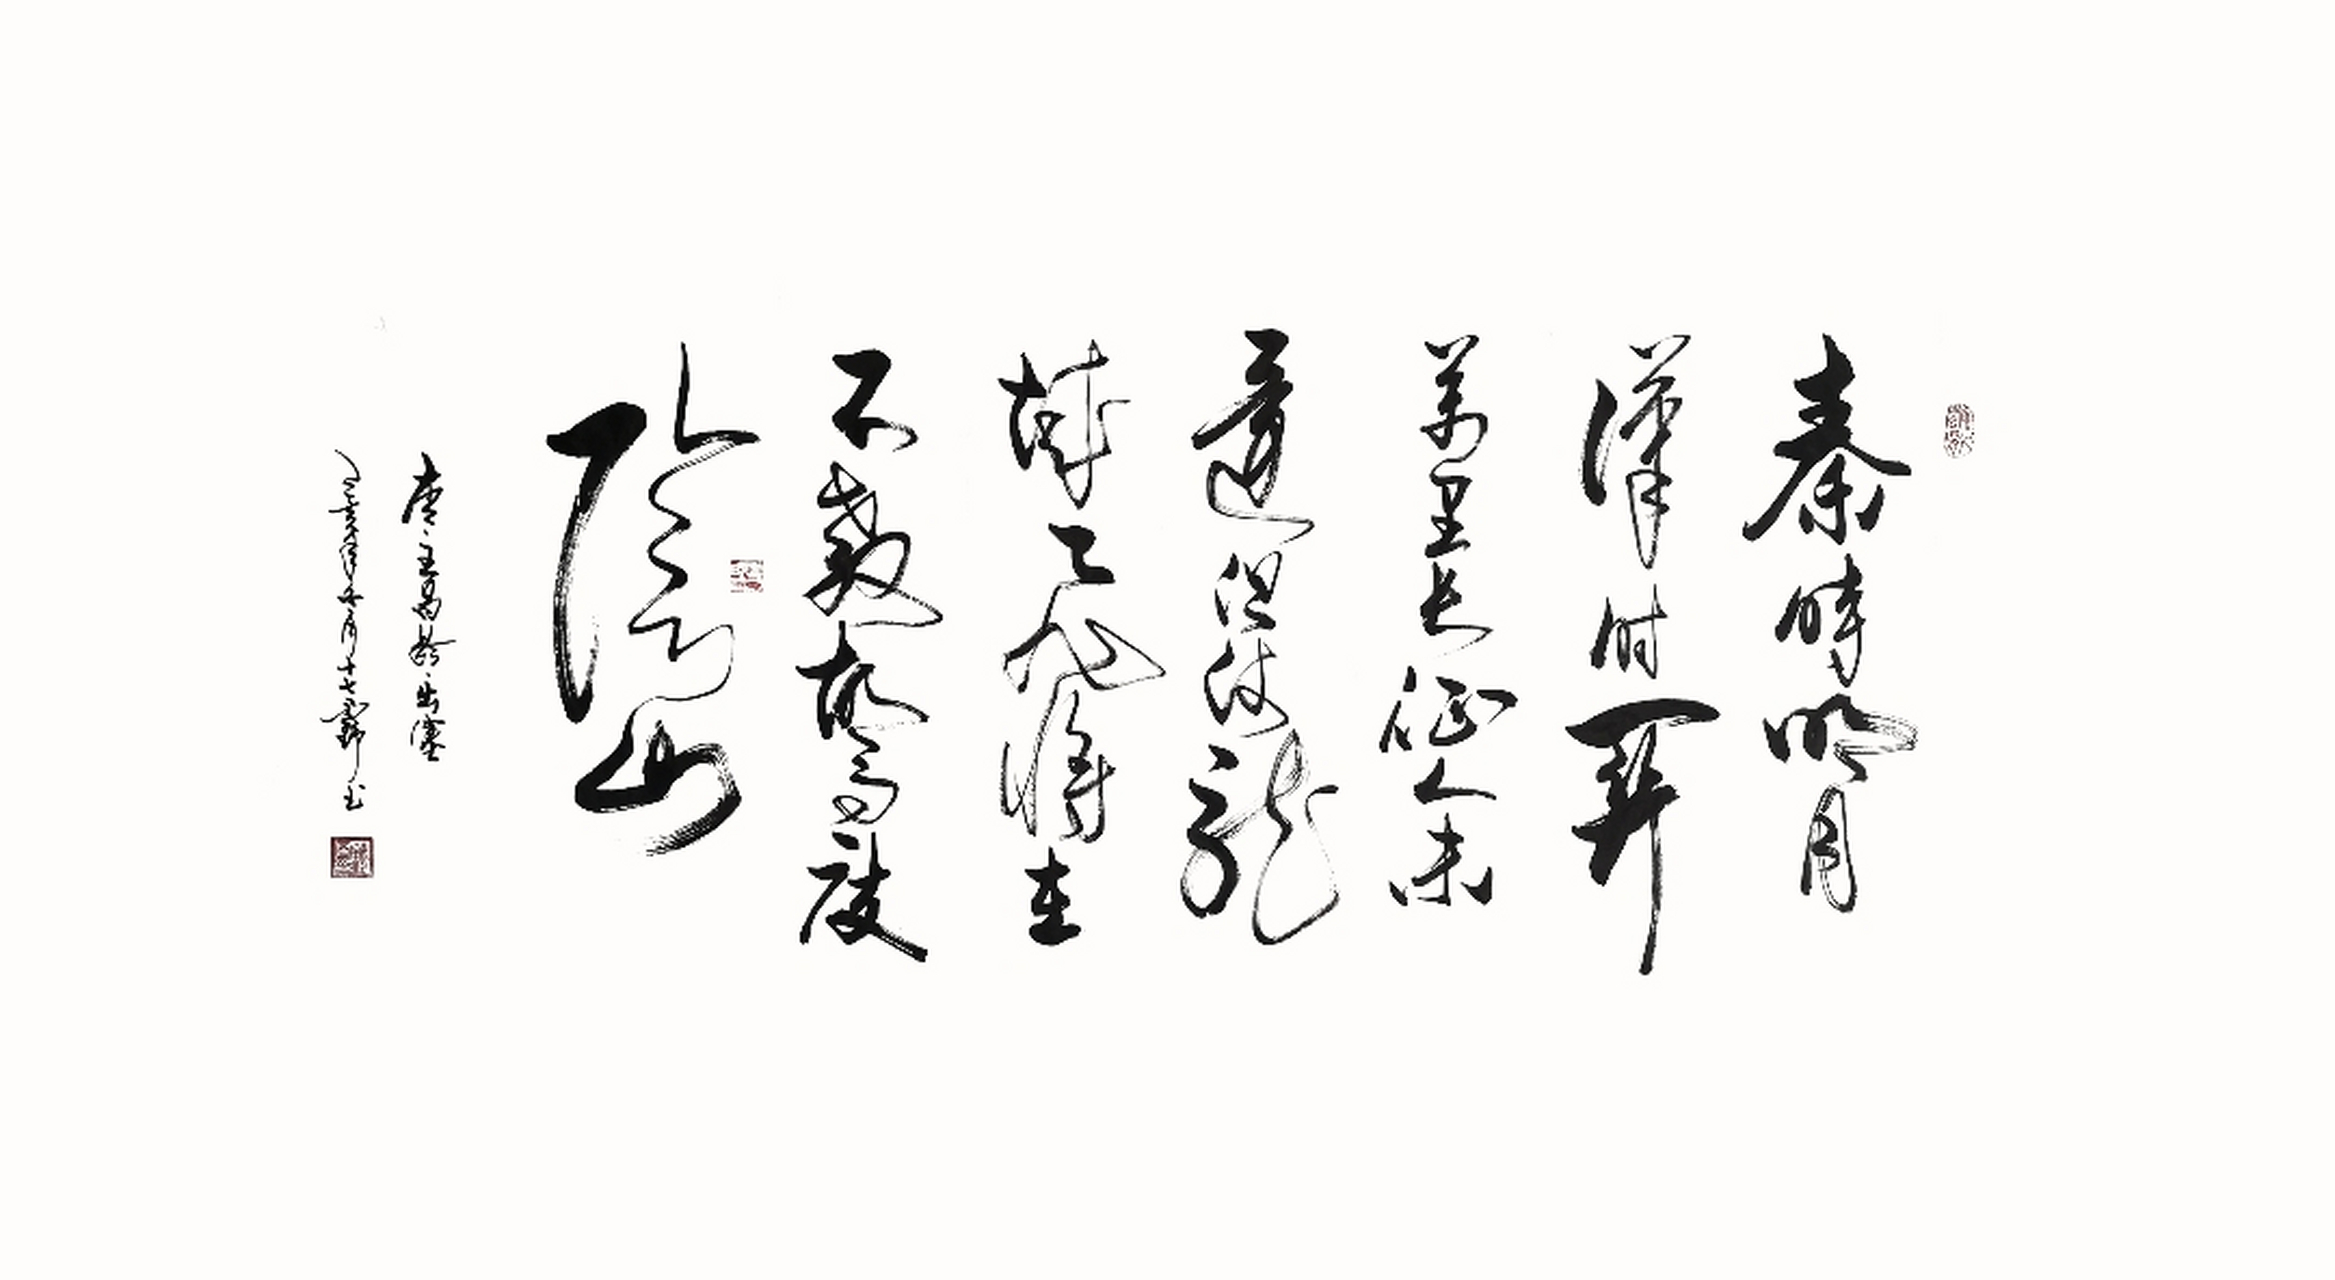 秦時明月
漢时関
萬里長征人未
還但使龍
城飛將在
不教胡馬度
陰山
唐王昌龄出塞
十七